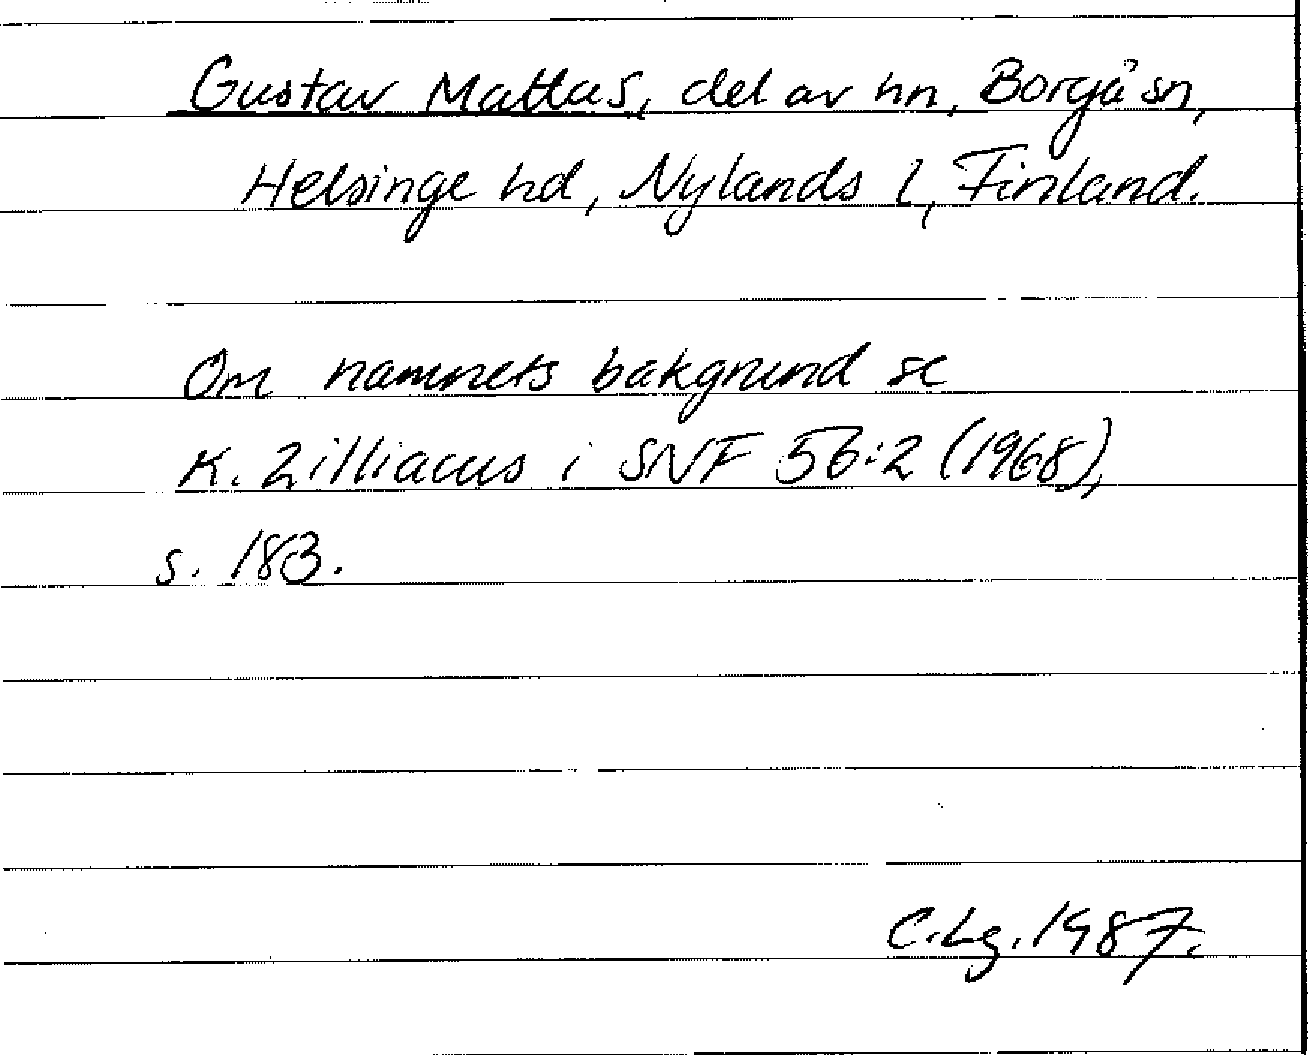 Gustav Mattas, del av hn, Borgå sn,
Helsinge hd, Nylands l, Finland.
Om namnets bakgrund se
K. Zilliacus i SNF 56:2 (1968),
s. 183.
C.Lg. 1987.